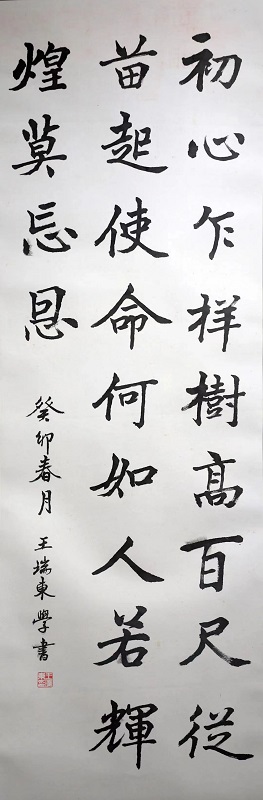 初心乍样樹高百尺從
苗起使命何如人若輝
煌莫忘恩
癸卯春月王瑞東學書